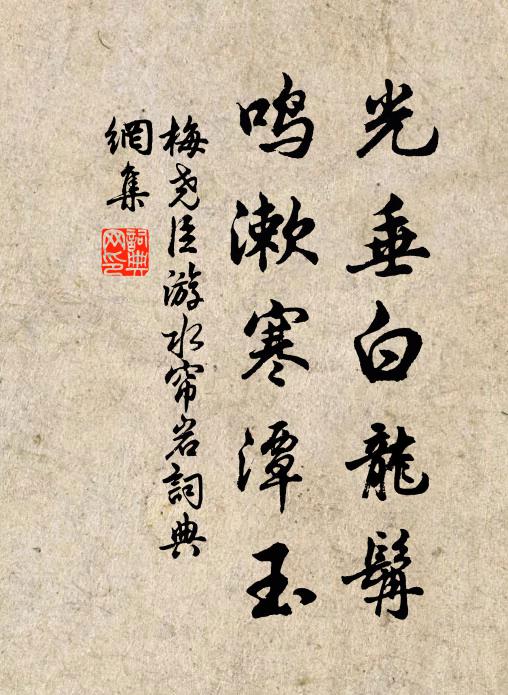 光垂白龍髯
鳴漱寒潭玉
梅尧臣游水帘岩詞典
網集
詞典
网印